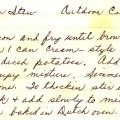 n Stew Outdoor Co
on and fry until brow
1 can cream-style
diced potatoes. Add
upy" mixture. Simme
To thicken stir
k & add slowly to me
baked in Dutch oven